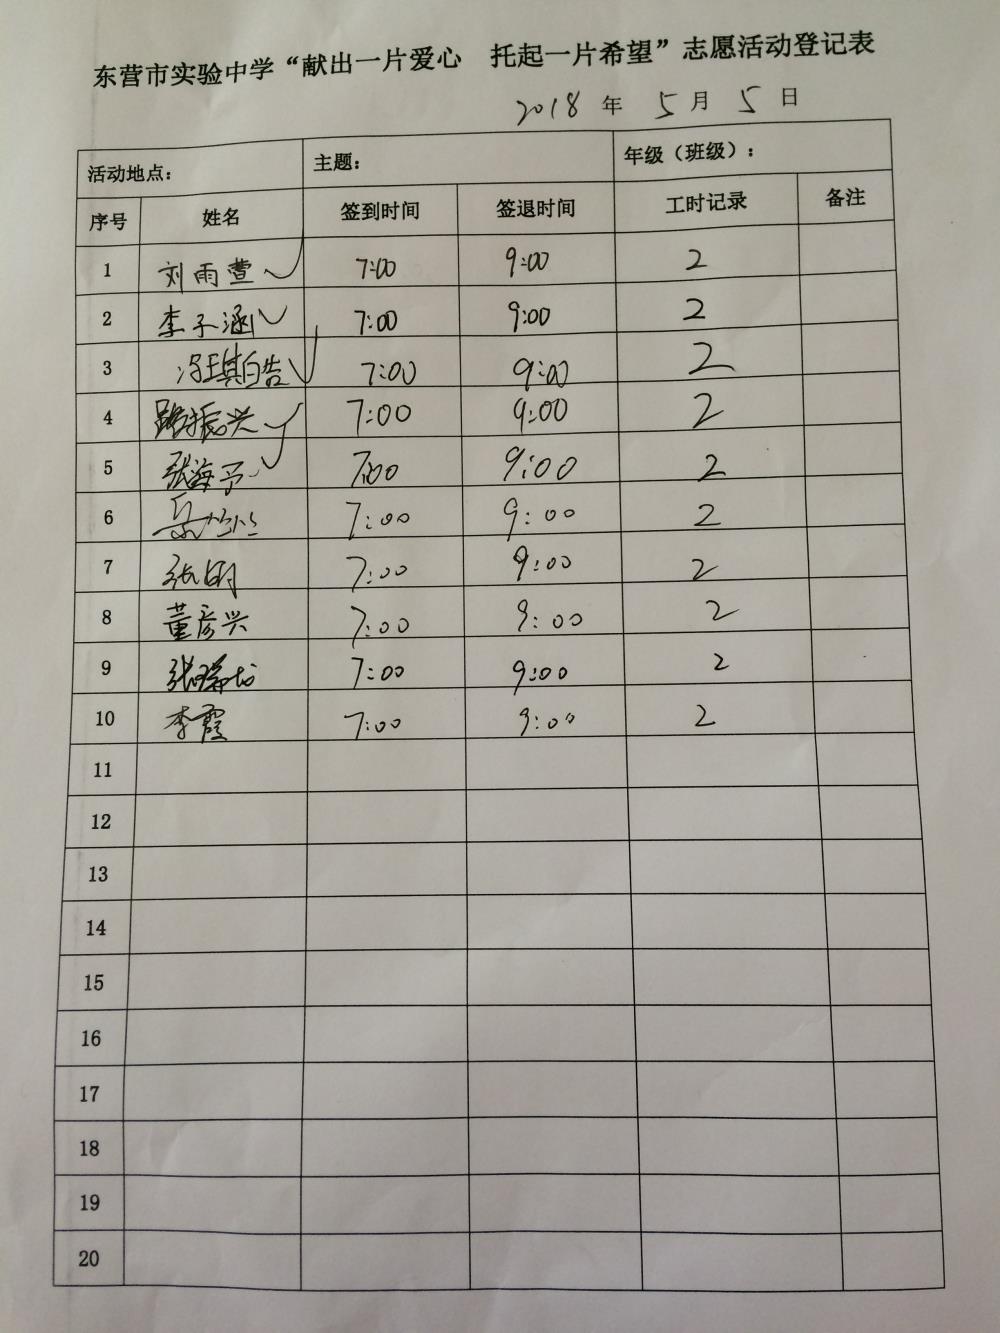 东营市实验中学“献出一片爱心 托起一片希望”志愿活动登记表
2018 年 5 月 5 日
活动地点： 主题： 年级（班级）：
序号 姓名 签到时间 签退时间 工时记录 备注
1 刘雨萱 7:00 9:00 2
2 李子涵 7:00 9:00 2
3 冯琪皓 7:00 9:00 2
4 路振兴 7:00 9:00 2
5 张海予 7:00 9:00 2
6 7:00 9:00 2
7 张明 7:00 9:00 2
8 董彦兴 7:00 9:00 2
9 张 7:00 9:00 2
10 李霞 7:00 9:00 2
11
12
13
14
15
16
17
18
19
20